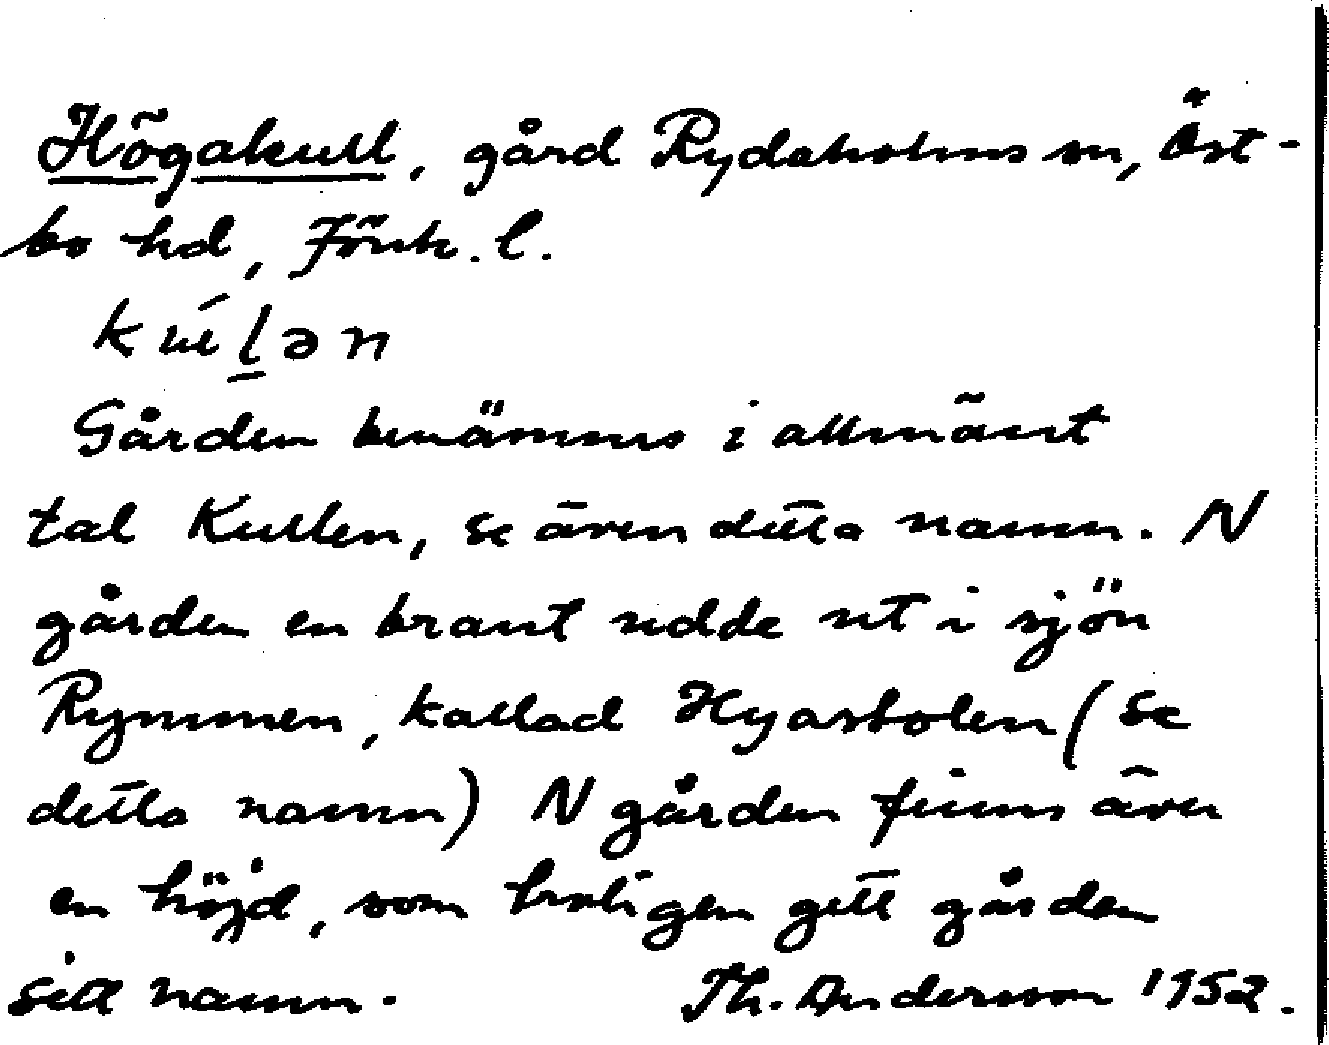 Högakull, gård Rydaholms sn, Öst-
bo hd, Jönk. l.
kúl̲ən
Gården benämnes i allmänt
tal Kullen, se även detta namn. N
gården en brant udde ut i sjön
Rymmen, kallad Hyastolen (se
detta namn) N gården finns även
en höjd, som troligen gett gården
sitt namn. Th. Andersson 1952.